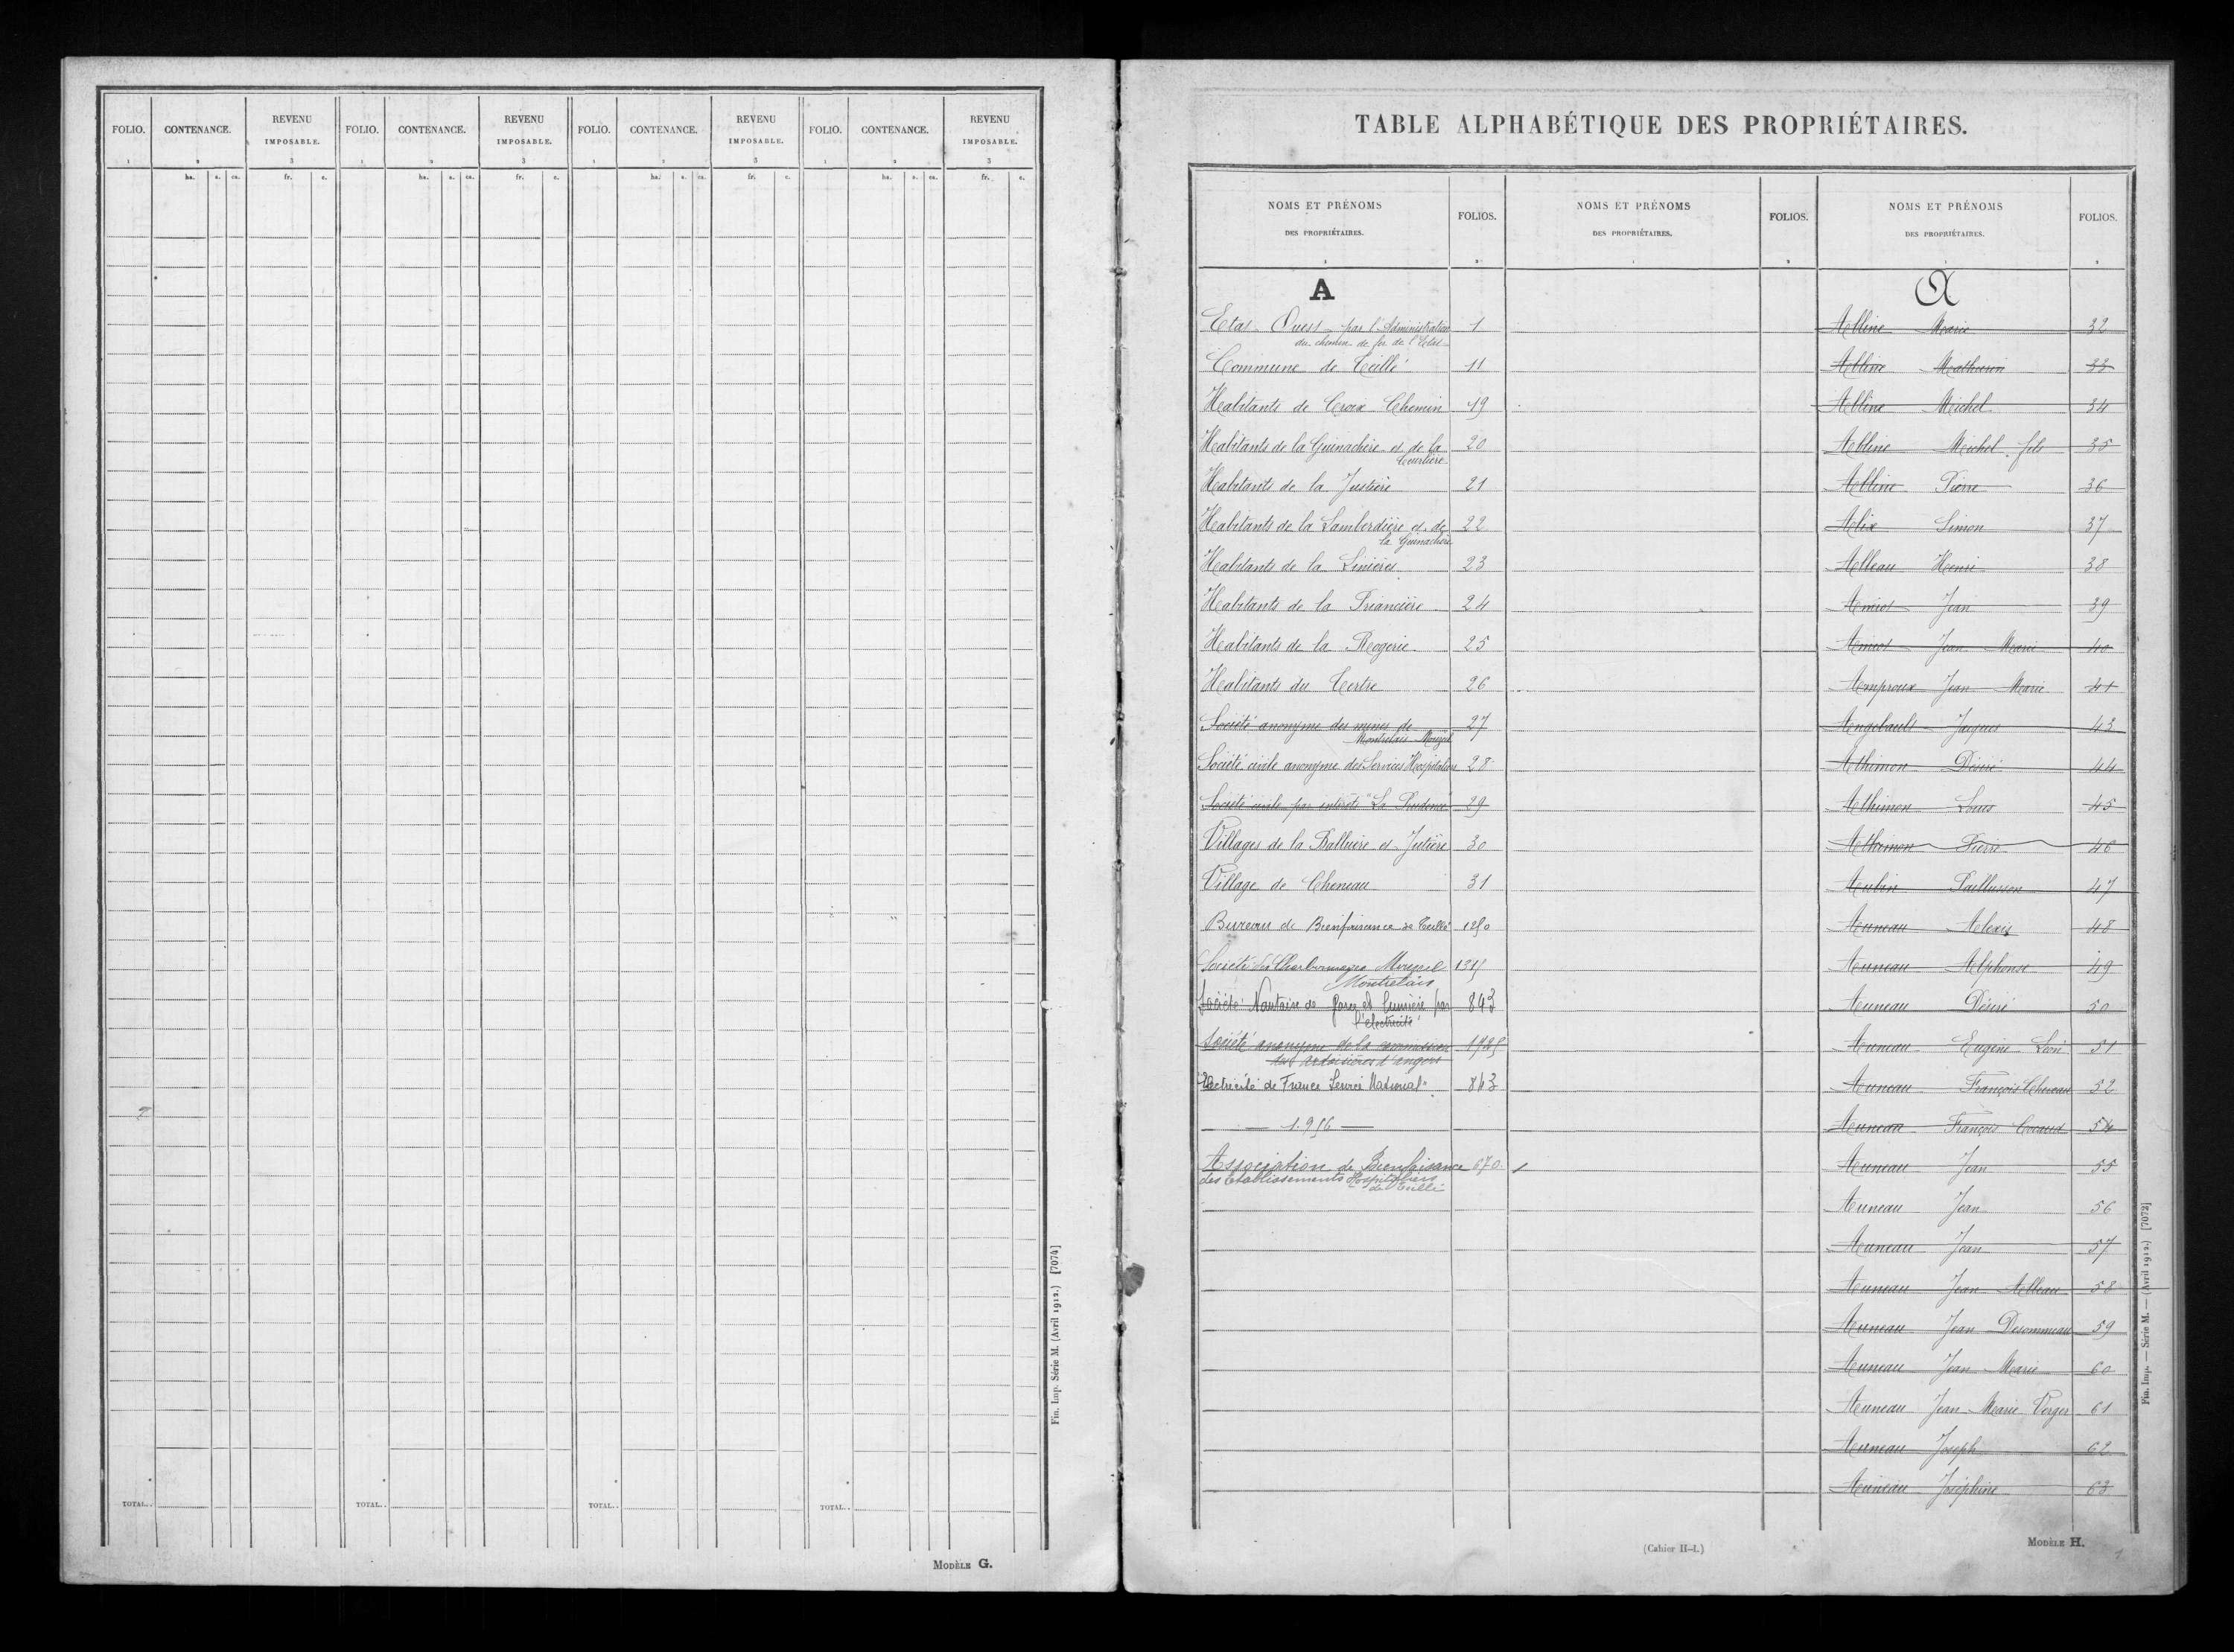 FOLIO. CONTENANCE. REVENU IMPOSABLE. FOLIO. CONTENANCE. REVENU IMPOSABLE. FOLIO. CONTENANCE. REVENU IMPOSABLE. FOLIO. CONTENANCE. REVENU IMPOSABLE.
1 2 3 1 2 3 1 2 3 1 2 3
ha. a. ca. fr. c. ha. a. ca. fr. c. ha. a. ca. fr. c. ha. a. ca. fr. c.
TOTAL.. TOTAL.. TOTAL.. TOTAL..
Fin. Imp. Série M. (Avril 1912.) [7074]
MODÈLE G.
TABLE ALPHABÉTIQUE DES PROPRIÉTAIRES.
NOMS ET PRÉNOMS DES PROPRIÉTAIRES. FOLIOS. NOMS ET PRÉNOMS DES PROPRIÉTAIRES. FOLIOS. NOMS ET PRÉNOMS DES PROPRIÉTAIRES. FOLIOS.
A
Etat Ouest par l'Administration 1
du chemin de fer de l'Etat
Commune de Teillé 11
Habitants de Croix Chemin 19
Habitants de la Guinachère et de la 20
Habitants de la 21
Habitants de la Lamberdière et de 22
la Guinachère
Habitants de la Linières 23
Habitants de la 24
Habitants de la Rogerie 25
Habitants du Tertre 26
Société anonyme des mines de 27
Montrelais Mouzeil
Société civile anonyme des Services Hospitaliers 28
Société civile par intérêts "La Prudence" 29
Villages de la et 30
Village de Cheneau 31
Bureau de Bienfaisance de Teillé
Société des Charbonnages Mouzeil
Montrelais
Société Nantaise de force et lumière par 843
l'électricité
Société anonyme de la commission
des ardoisières d'angers
Electricité de France Service National 843
1.956
Association de Bienfaisance 670
des Etablissements Hospitaliers
de Teillé
A
Abline Marie 32
Abline Mathurin 33
Abline Michel 34
Abline Michel fils 35
Abline Pierre 36
Alix Simon 37
Alleau Henri 38
Amiot Jean 39
Amiot Jean Marie 40
Amproux Jean Marie 41
Angebault Jacques 43
Athimon Désiré 44
Athimon Louis 45
Athimon Pierre 46
Aubin Paillusson 47
Auneau Alexis 48
Auneau Alphonse 49
Auneau Désiré 50
Auneau Eugène Léon 51
Auneau François Cheneau 52
Auneau François Cocaud 54
Auneau Jean 55
Auneau Jean 56
Auneau Jean 57
Auneau Jean Alleau 58
Auneau Jean Desormeau 59
Auneau Jean Marie 60
Auneau Jean Marie Verger 61
Auneau Joseph 62
Auneau Joséphine 63
Fin. Imp. — Série M. — (Avril 1912.) [7072]
(Cahier H-I.)
MODÈLE H.
1